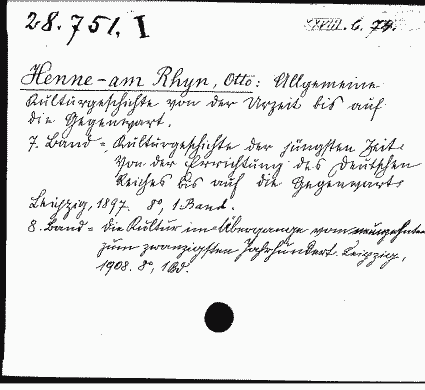 28.751. I
XXIII. C. 74.
Henne-am Rhyn, Otto: Allgemeine
Kulturgeschichte von der Urzeit bis auf
die Gegenwart.
7. Band = Kulturgeschichte der jüngsten Zeit.
Von der Errichtung des Deutschen
Reiches bis auf die Gegenwart.
Leipzig, 1897. 8°, 1 Band.
8. Band = Die Kultur im Übergange vom neunzehnten
zum zwanzigsten Jahrhundert. Leipzig,
1908. 8°, 1 Bd.